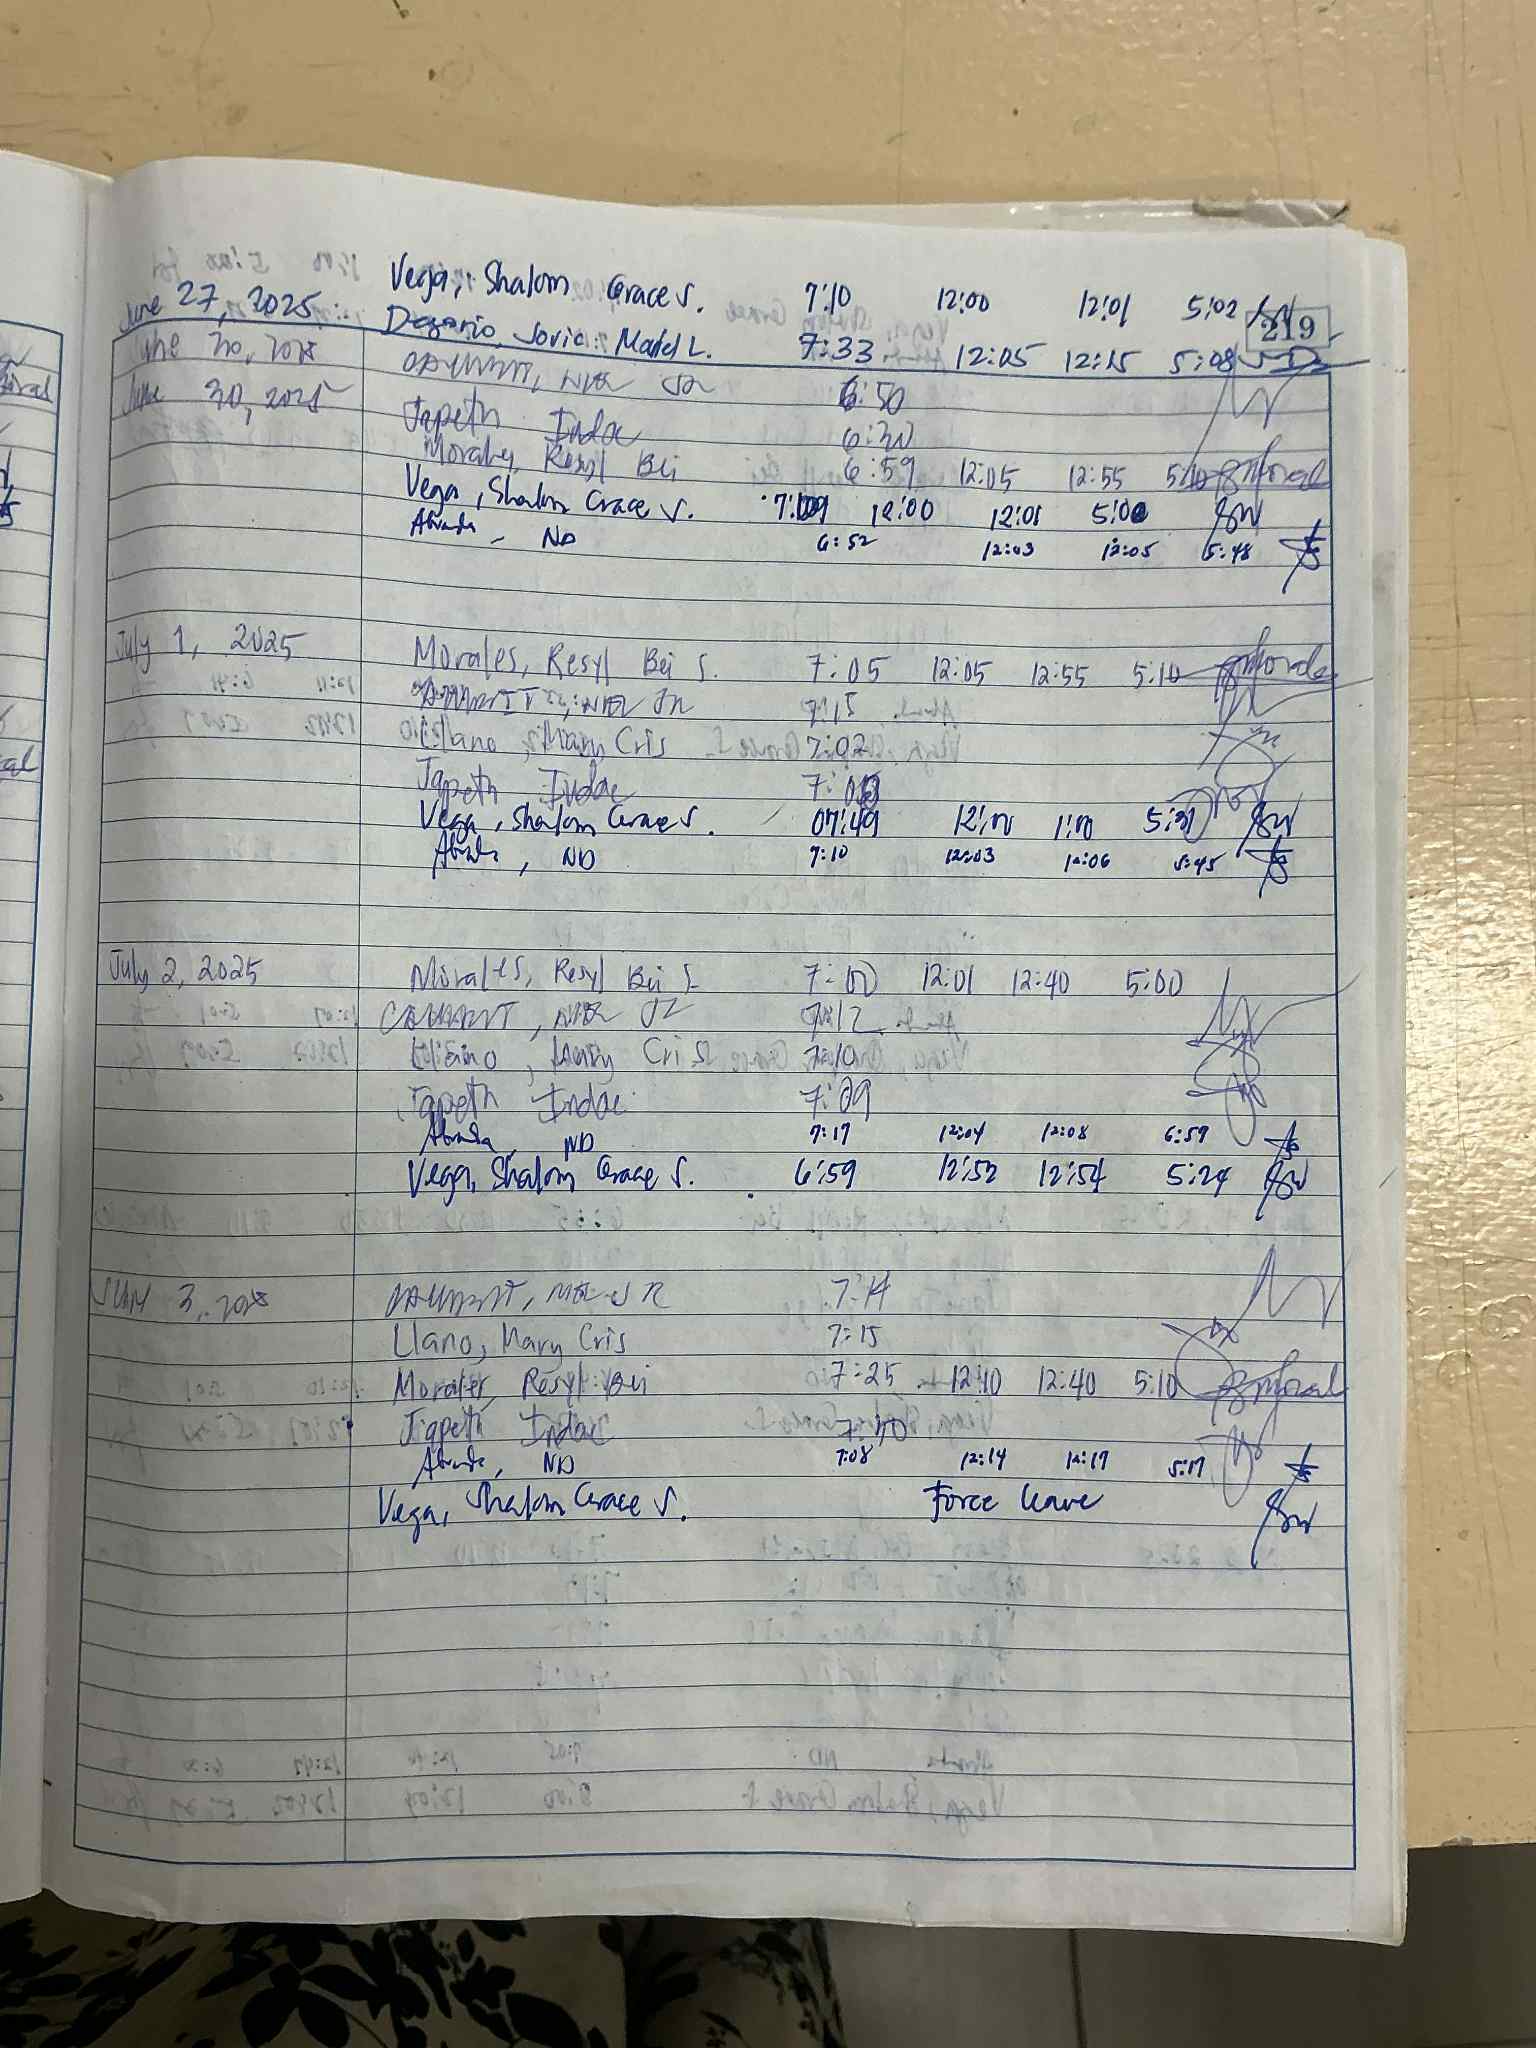 Vega, Shalom Grace S. 7:10 12:00 12:01 5:02
June 27, 2025 219
Madel L. 7:33 12:05 12:15 5:08
June 30, 2025 6:50
June 30, 2025 Japeth Indac 6:30
Morales, Resyl Bei 6:59 12:05 12:55 5:10
Vega, Shalom Grace S. 7:09 12:00 12:01 5:00
ND 6:52 12:03 12:05 5:48
July 1, 2025 Morales, Resyl Bei S. 7:05 12:05 12:55 5:10
7:15
Llano, Mary Cris 7:02
Japeth Indac
Vega, Shalom Grace S. 07:49 12:00 1:00
ND 7:10 12:03 12:06 5:45
July 2, 2025 Morales, Resyl Bei S. 7:00 12:01 12:40 5:00
7:12
Llano, Mary Cris
Japeth Indac 7:09
ND 7:17 12:04 12:08 6:59
Vega, Shalom Grace S. 6:59 12:52 12:54 5:24
July 3, 2025 7:14
Llano, Mary Cris 7:15
Morales, Resyl Bei 7:25 12:10 12:40 5:10
Japeth Indac
ND 7:08 12:14 12:17 5:17
Vega, Shalom Grace S. Force leave